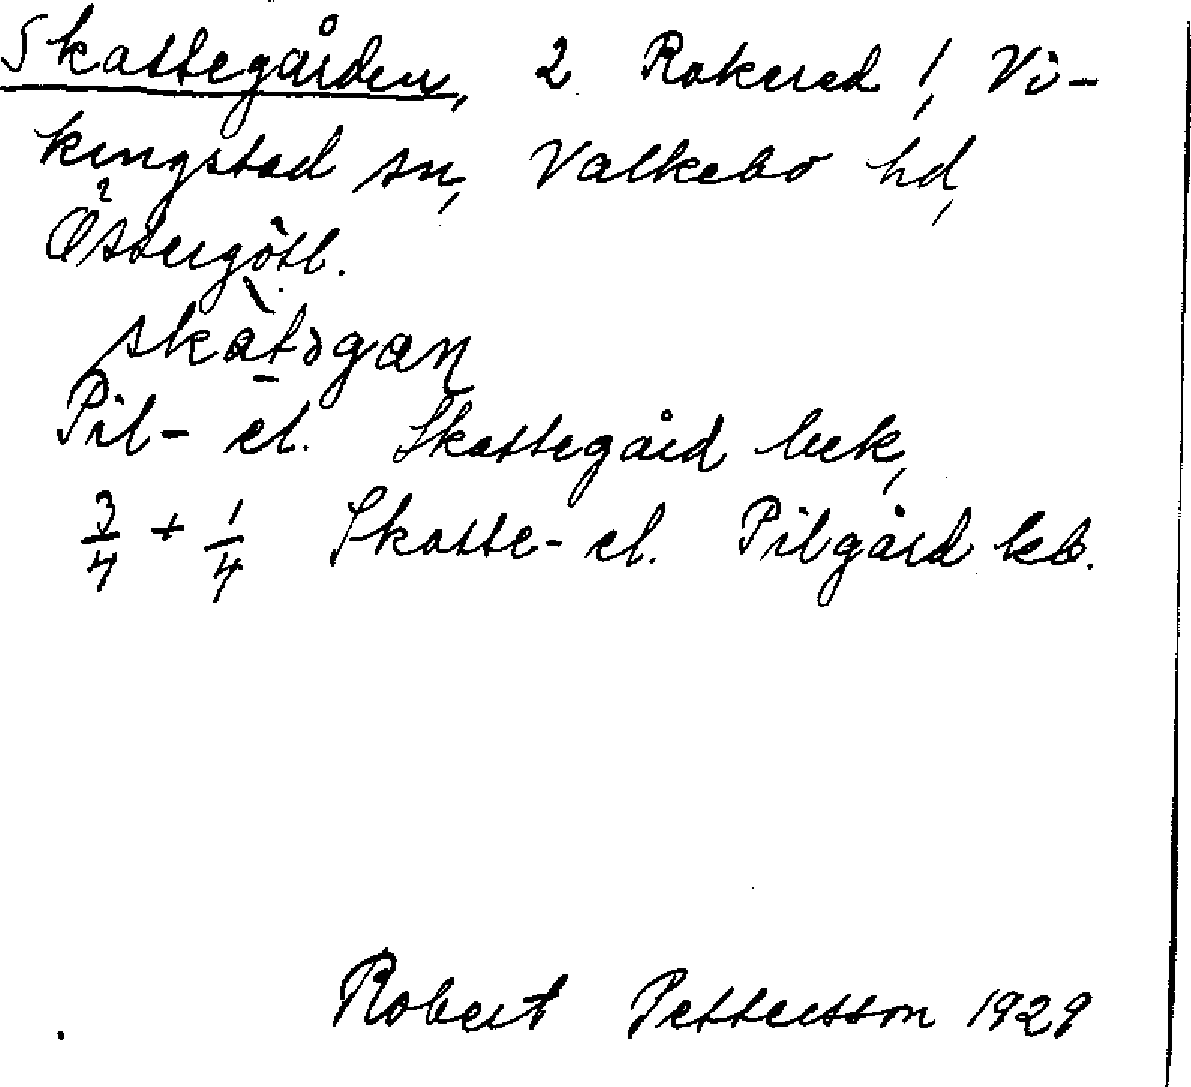 Skattegården, 2 Rakered 1, Vi-
kingstad sn, Valkebo hd,
Östergötl.
skàt̠əgan
Pil- el. Skattegård bek,
3/4 + 1/4 Skatte- el. Pilgård kb.
Robert Pettersson 1929